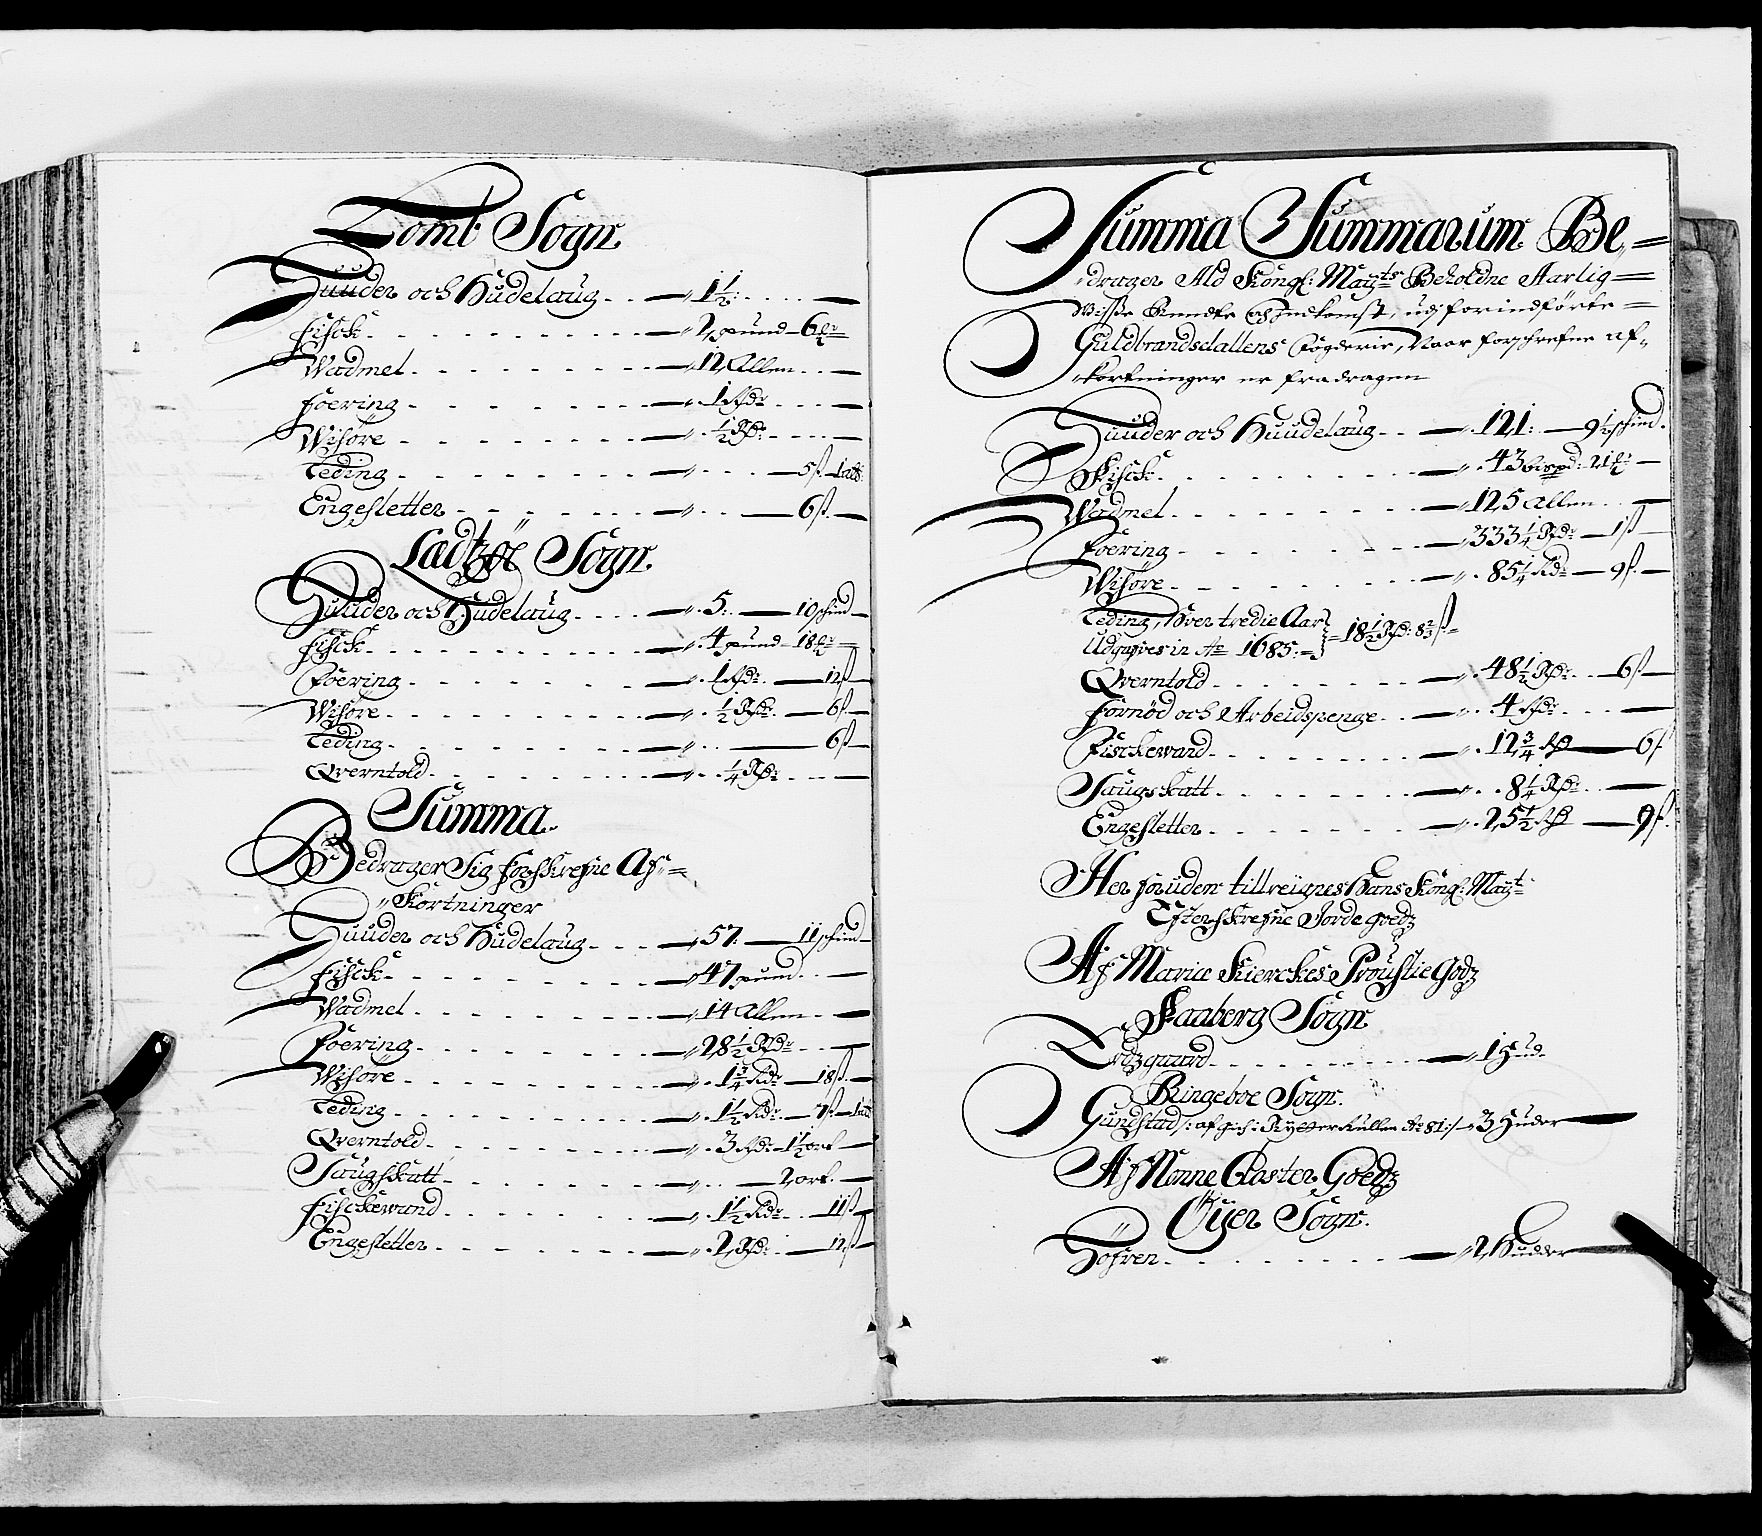 Tomb Sogn
Huuder och Hudelaug - - — 1 1/2: — 
Fisck - - — 2 pund — 6
Wadmel - - — 12 Allen —
Foering - - — 1 Rdr —
Wisøre - - — 1/2 Rdr —
Teding - - — 5 ß —
Engesletter - - — 6 ß —
Sogn
Huuder och Hudelaug - - — 5: — 10 schind —
Fisck - - — 4 pund — 18
Foering - - — 1 Rdr — 12 ß
Wisøre - - — 1/2 Rdr — 6 ß
Teding - - — 6 ß
Qverntold - - — 1/4 Rdr —
Summa
Bedrager Sig forskrefne Af=
Kortninger
Huuder och Hudelaug - - — 57: — 11 schind —
Fisck - - — 47 pund —
Wadmel - - — 14 Allen —
Foering - - — 28 1/2 Rdr —
Wisøre - - — 1 3/4 Rdr — 18 ß
Teding - - — 1 1/2 Rdr — 7 ß —
Qverntold - - — 3 Rdr — 1 1/2 ort —
Saugskatt - - — 2 ort —
Fisckewand - - — 1 1/2 Rdr — 11 ß
Engesletter - - — 2 Rdr — 12 ß
Summa Summarum Be=
drager Ald Kongl: Mayts Beholdne Aarlig=
Wisse Rendte Och Indkomst, udj forindførte=
Guldbrandsdallens Fogderie, Naar forschrefne af=
kortninger er fradragen
Huuder och Huudelaug - - — 121: — 9 1/2 schind.
Fisck - - — 43 bispd: 21
Wadmel - - — 125 Allen —
Foering - - — 333 1/4 Rdr — 1 ß
Wisøre - - — 85 1/4 Rdr — 9 ß
Teding, Hver tredie Aar
Udgifves in Ao 1685: = 18 1/2 Rdr: 8 2/3 ß
Qverntold - - — 48 1/2 Rdr — 6 ß
Fornød och Arbeidspenge - - — 4 Rdr —
Fisckewand - - — 12 3/4 Rdr — 6 ß
Saugskatt - - — 8 1/4 Rdr —
Engesletter - - — 25 1/2 Rdr — 9 ß
Her foruden tillreignes Hans Kongl: Mayt
Efterskrefne Jordegoedz
Af Mariæ Kierckes Proustie Godz
Faaberg Sogn
- - — 1 Hud
Ringeboe Sogn
Gundstad /: afgich i Rytterrullen Ao 81:/ 3 Huder
Af Nonne Closter Goedz
Öyer Sogn
- - — 2 Hudder